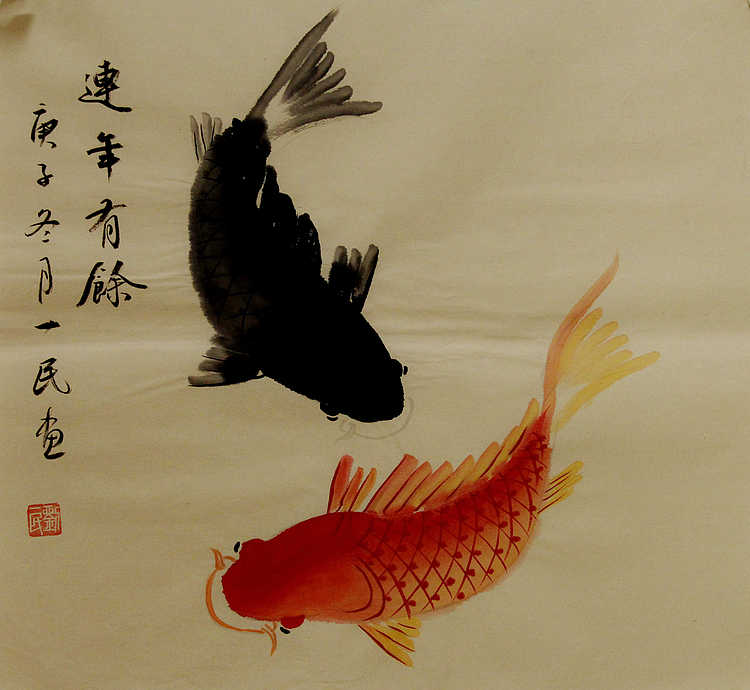 連年有餘
庚子冬月一民画
劉一民